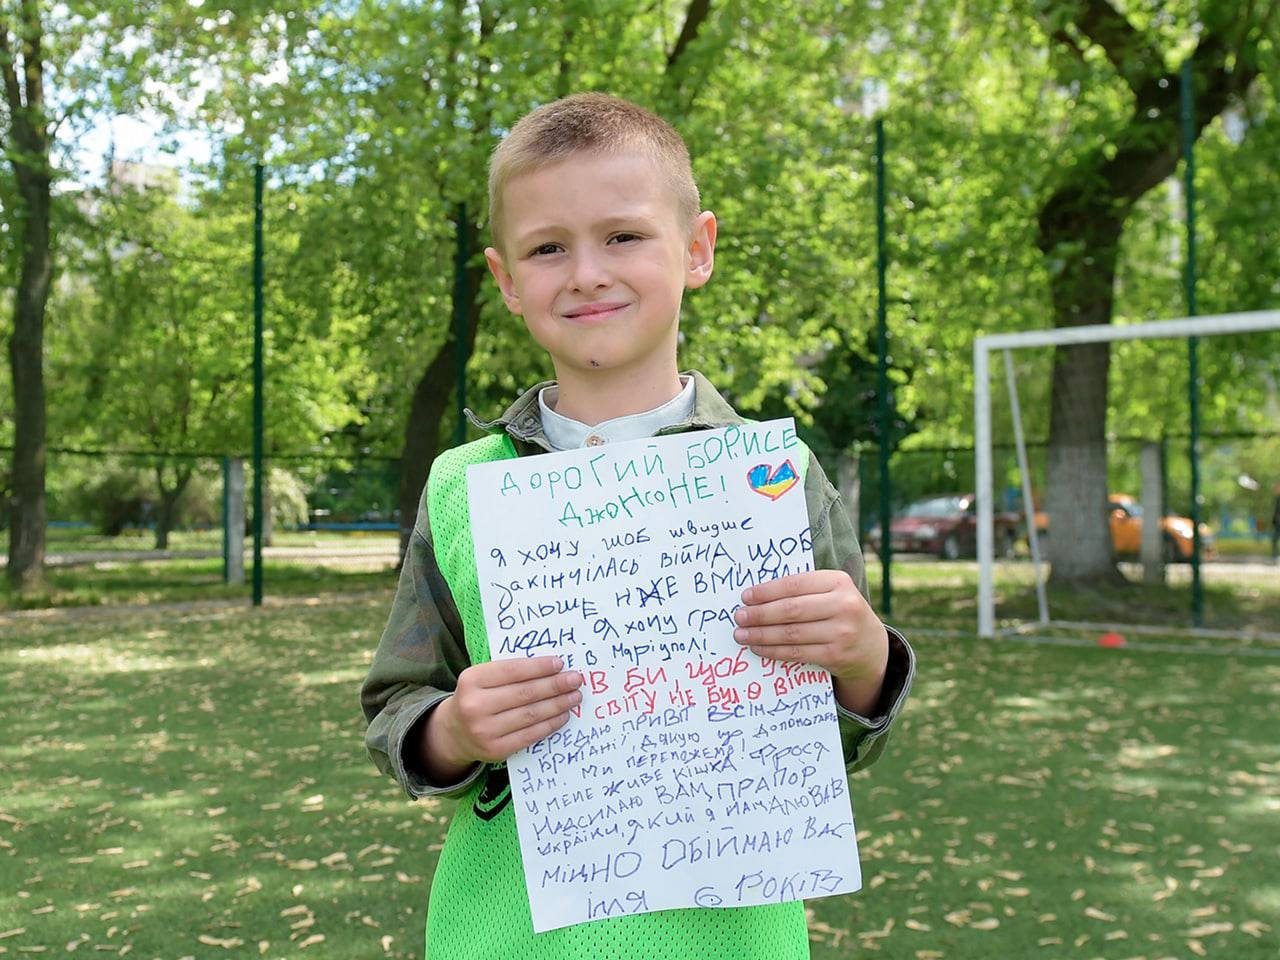 ДОРОГИЙ БОРИСЕ
ДЖОНСОНЕ!
Я ХОЧУ, ЩОБ ШВИДШЕ
ЗАКІНЧІЛАСЬ ВІЙНА, ЩОБ
БІЛЬШЕ НЖЕ ВМИРАЛИ
ЛЮДИ. Я ХОЧУ
В МАРІУПОЛІ.
БИ, ЩОБ
СВІТУ НЕ БУЛО ВІЙНИ
ПЕРЕДАЮ ПРИВІТ ВСІМ ДІТЯМ
У БРИТАНІЇ, ДЯКУЮ ЩО ДОПОМОГАЄТЕ
НАМ. МИ ПЕРЕМОЖЕМ!
У МЕНЕ ЖИВЕ КІШКА ФРОСЯ
НАДСИЛАЮ ВАМ, ПРАПОР
УКРАЇНИ, ЯКИЙ Я НАМАЛЮВАВ
МІЦНО ОБІЙМАЮ ВАС
ІЛЛЯ 6 РОКІВ